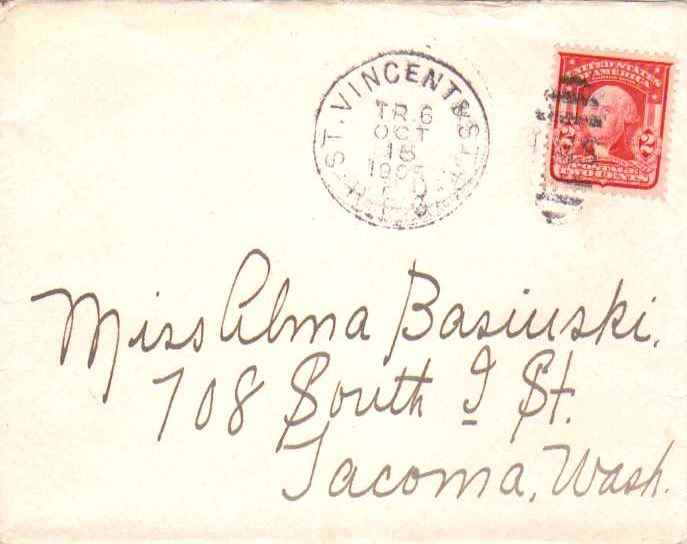 ST. VINCENT & ST. P.
TR. 6
OCT
15
1905
R.P.O.
UNITED STATES
OF AMERICA
2 2
POSTAGE
TWO CENTS
Miss Alma Basinski.
708 South I St.
Tacoma, Wash.